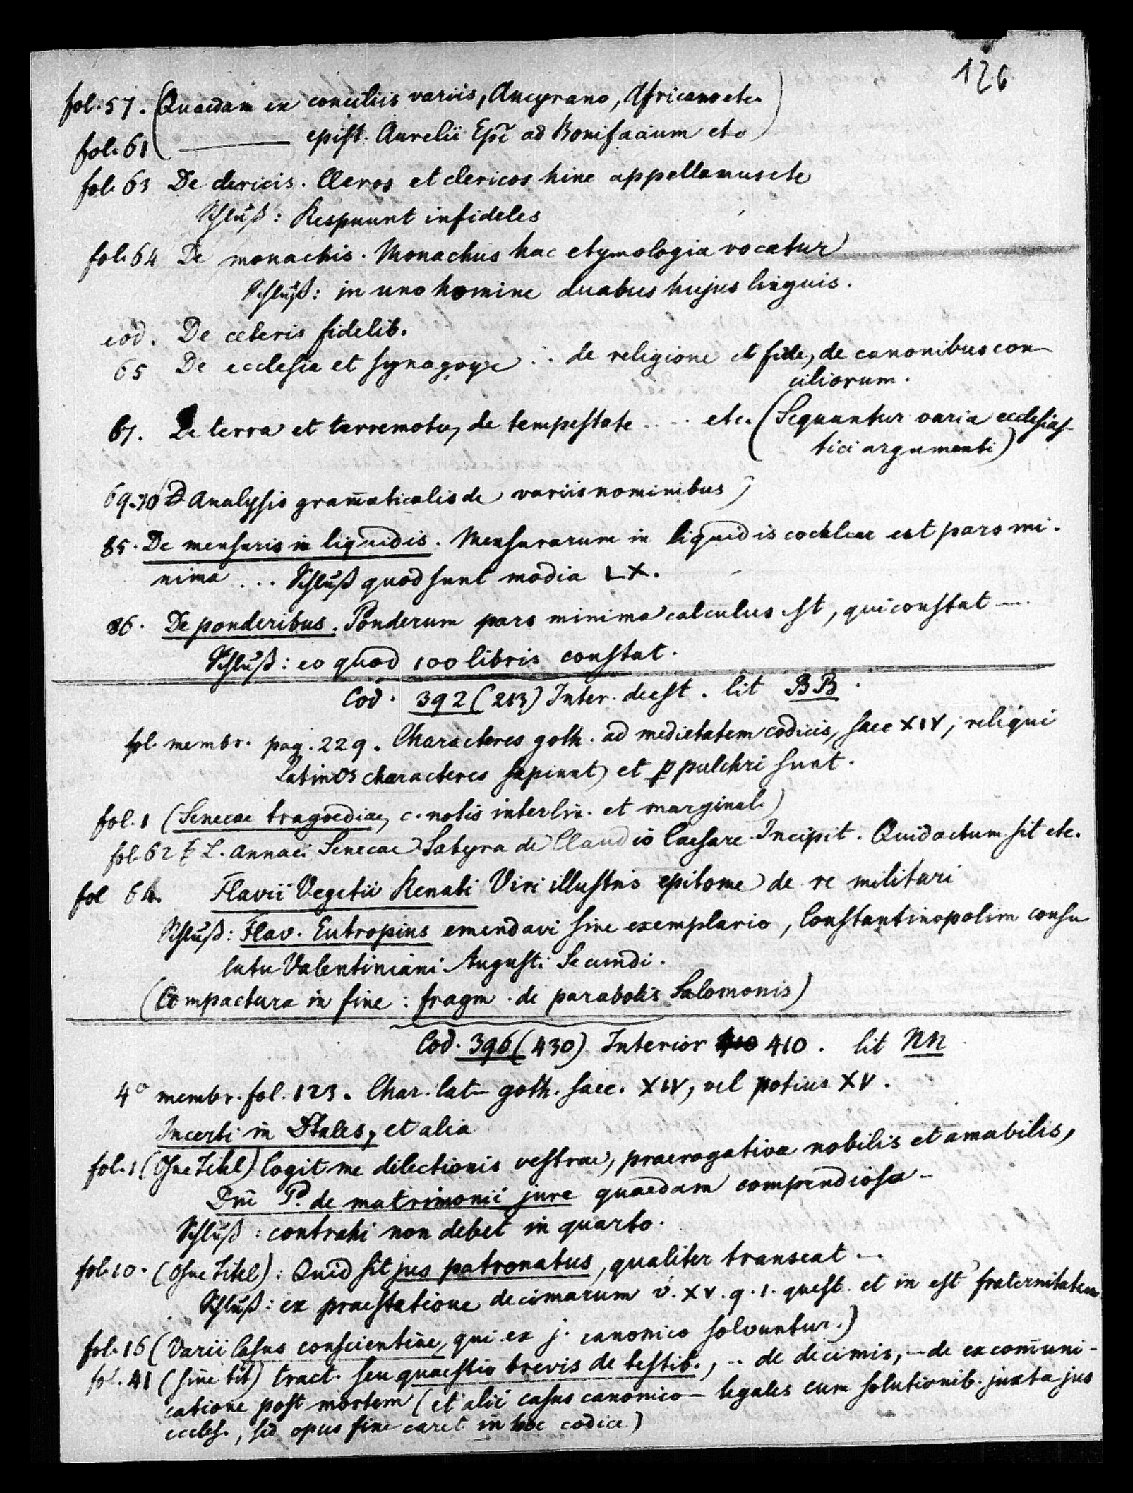 126
fol. 57. (Quaedam ex conciliis variis, Ancyrano, Africano etc.
fol. 61 ——— epist. Aurelii Epi ad Bonifacium etc)
fol. 63 De clericis. Cleros et clericos hinc appellamus etc
Schluß: Respuunt infideles
fol. 64 De monachis. Monachus hac etymologia vocatur
Schluß: in uno homine duabus hujus linguis.
eod. De ceteris fidelib.
65 De ecclesia et synagoge ... de religione et fide, de canonibus con-
ciliorum.
67. De terra et terremotu, de tempestate .... etc. (Sequantur varia ecclesias-
tici argumenti)
69-70 Analysis gram̄aticalis de variis nominibus)
85. De mensuris in liquidis. Mensurarum in liquidis coclear est pars mi-
nima ... Schluß quod sunt modia LX.
86. De ponderibus. Ponderum pars minima calculus est, qui constat —.
Schluß: eo quod 100 libris constat.
Cod. 392 (213) Inter. deest. lit BB.
fol. membr. pag. 229. Characteres goth. ad medietatem codicis, saec XIV, reliqui
Latinos characteres sapiunt, et p pulchri sunt.
fol. 1 (Senecae tragoediae, c. notis interlin. et marginal.)
fol. 62 L. Annaei Senecae Satyra de Claudio Caesare. Incipit. Quid actum sit etc.
fol 64. Flavii Vegetii Renati Viri illustris epitome de re militari
Schluß: Flav. Eutropius emendavi sine exemplario, Constantinopolim consu
latu Valentiniani Augusti Secundi.
(Compactura in fine: fragm. de parabolis Salomonis)
Cod. 396 (430) Interior 410. lit NN
4° membr. fol. 123. Char. lat- goth. saec. XIV, vel potius XV.
Incerti in, et alia
fol. 1 (Ohne Titel) Cogit me dilectionis vestrae, praerogativa nobilis et amabilis,
Dni P. de matrimonii jure quaedam compendiosa —
Schluß: contrahi non debet in quarto.
fol. 10. (Ohne Titel): Quid sit jus patronatus, qualiter transeat —.
Schluß: ex praestatione decimarum v. XV. q. 1. quest. et in est fraternitatem
fol. 16 (Varii Casus conscientiae, qui ex j. canonico solvuntur.)
fol. 41 (sine tit) tract. seu quaestio brevis de testib., .. de decimis, — de excom̄uni-
catione post mortem (et alii casus canonico — legales cum solutionib. juxta jus
eccles., sed opus fine caret in hoc codice)